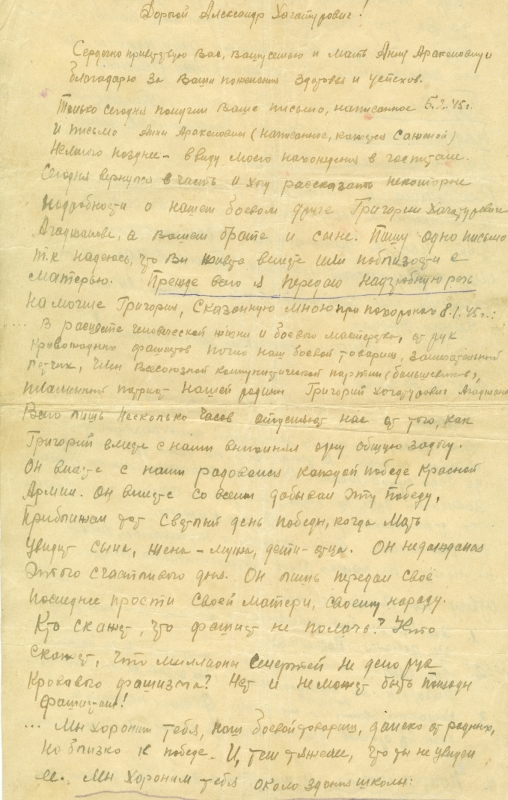 Дорогой Александр Хачатурович!
Сердечно приветствую Вас, Вашу семью и Мать Анну Аракеловну
благодарю за Ваши пожелания здоровья и успехов.
Только сегодня получил Ваше письмо, написанное 5.2.45г.
и письмо Анны Аракеловны (написанное, кажется Санькой)
Немного позднее - ввиду моего нахождения в госпитале.
Сегодня вернулся в часть и хочу рассказать некоторые
подробности о нашем боевом друге Григории Хачатуровиче
а Вашем брате и сыне. Пишу одно письмо
т.к надеюсь, что Вы живете вместе или поблизости с
Матерью. Прежде всего я передаю Надгробную речь
на могиле Григория, сказанную мною при похоронах 8.1.45г.:
... В расцвете человеческой жизни и боевого мастерства, от рук
кровожадных фашистов погиб наш боевой товарищ,
летчик, член Всесоюзной коммунистической партии (большевиков),
пламенный патриот нашей родины Григорий Хачатурович
Всего лишь несколько часов отделяют нас от того, как
Григорий вместе с нами выполнял одну общую задачу.
Он вместе с нами радовался каждой победе Красной
Армии. Он вместе со всеми добывал эту победу,
приближал тот светлый день победы, когда Мать
увидит сына, жена - мужа, дети - отца. Он не дождался
этого счастливого дня. Он лишь передал своё
последнее прости своей матери, своему народу.
Кто скажет, что фашист не палач? Кто
скажет, что миллионы смертей не дело рук
Кровавого фашизма? Нет и не может быть пощады
фашистам!
... Мы хороним тебя, наш боевой товарищ, далеко от родных,
но близко к победе. И, тем тяжелее, что ты не увидел
ее. Мы хороним тебя около здания школы: